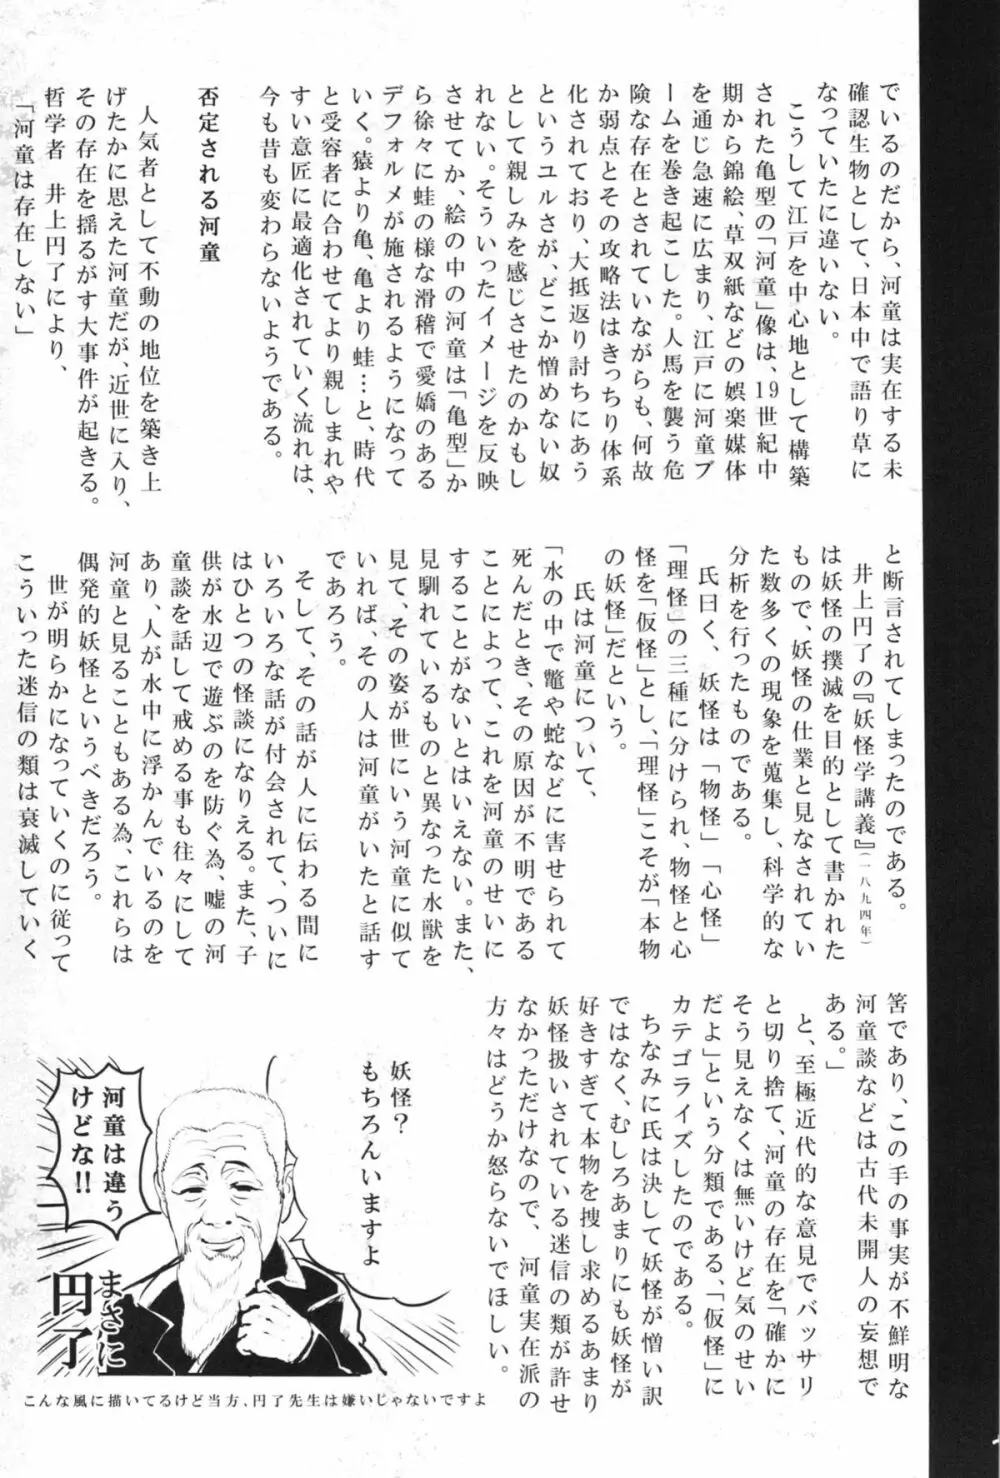 でいるのだから、河童は実在する未
確認生物として、日本中で語り草に
なっていたに違いない。
こうして江戸を中心地として構築
された亀型の「河童」像は、19世紀中
期から錦絵、草双紙などの娯楽媒体
を通じ急速に広まり、江戸に河童ブ
ームを巻き起こした。人馬を襲う危
険な存在とされていながらも、何故
か弱点とその攻略法はきっちり体系
化されており、大抵返り討ちにあう
というユルさが、どこか憎めない奴
として親しみを感じさせたのかもし
れない。そういったイメージを反映
させてか、絵の中の河童は「亀型」か
ら徐々に蛙の様な滑稽で愛嬌のある
デフォルメが施されるようになって
いく。猿より亀、亀より蛙…と、時代
と受容者に合わせてより親しまれや
すい意匠に最適化されていく流れは、
今も昔も変わらないようである。
否定される河童
人気者として不動の地位を築き上
げたかに思えた河童だが、近世に入り、
その存在を揺るがす大事件が起きる。
哲学者 井上円了により、
「河童は存在しない」
と断言されてしまったのである。
井上円了の『妖怪学講義』(一八九四年)
は妖怪の撲滅を目的として書かれた
もので、妖怪の仕業と見なされてい
た数多くの現象を蒐集し、科学的な
分析を行ったものである。
氏曰く、妖怪は「物怪」「心怪」
「理怪」の三種に分けられ、物怪と心
怪を「仮怪」とし、「理怪」こそが「本物
の妖怪」だという。
氏は河童について、
「水の中で鼈や蛇などに害せられて
死んだとき、その原因が不明である
ことによって、これを河童のせいに
することがないとはいえない。また、
見馴れているものと異なった水獣を
見て、その姿が世にいう河童に似て
いれば、その人は河童がいたと話す
であろう。
そして、その話が人に伝わる間に
いろいろな話が付会されて、ついに
はひとつの怪談になりえる。また、子
供が水辺で遊ぶのを防ぐ為、嘘の河
童談を話して戒める事も往々にして
あり、人が水中に浮かんでいるのを
河童と見ることもある為、これらは
偶発的妖怪というべきだろう。
世が明らかになっていくのに従って
こういった迷信の類は衰滅していく
筈であり、この手の事実が不鮮明な
河童談などは古代未開人の妄想で
ある。」
と、至極近代的な意見でバッサリ
と切り捨て、河童の存在を「確かに
そう見えなくは無いけど気のせい
だよ」という分類である、「仮怪」に
カテゴライズしたのである。
ちなみに氏は決して妖怪が憎い訳
ではなく、むしろあまりにも妖怪が
好きすぎて本物を捜し求めるあまり
妖怪扱いされている迷信の類が許せ
なかっただけなので、河童実在派の
方々はどうか怒らないでほしい。
妖怪?
もちろんいますよ
河童は違う
けどな!!
まさに
円了
こんな風に描いてるけど当方、円了先生は嫌いじゃないですよ